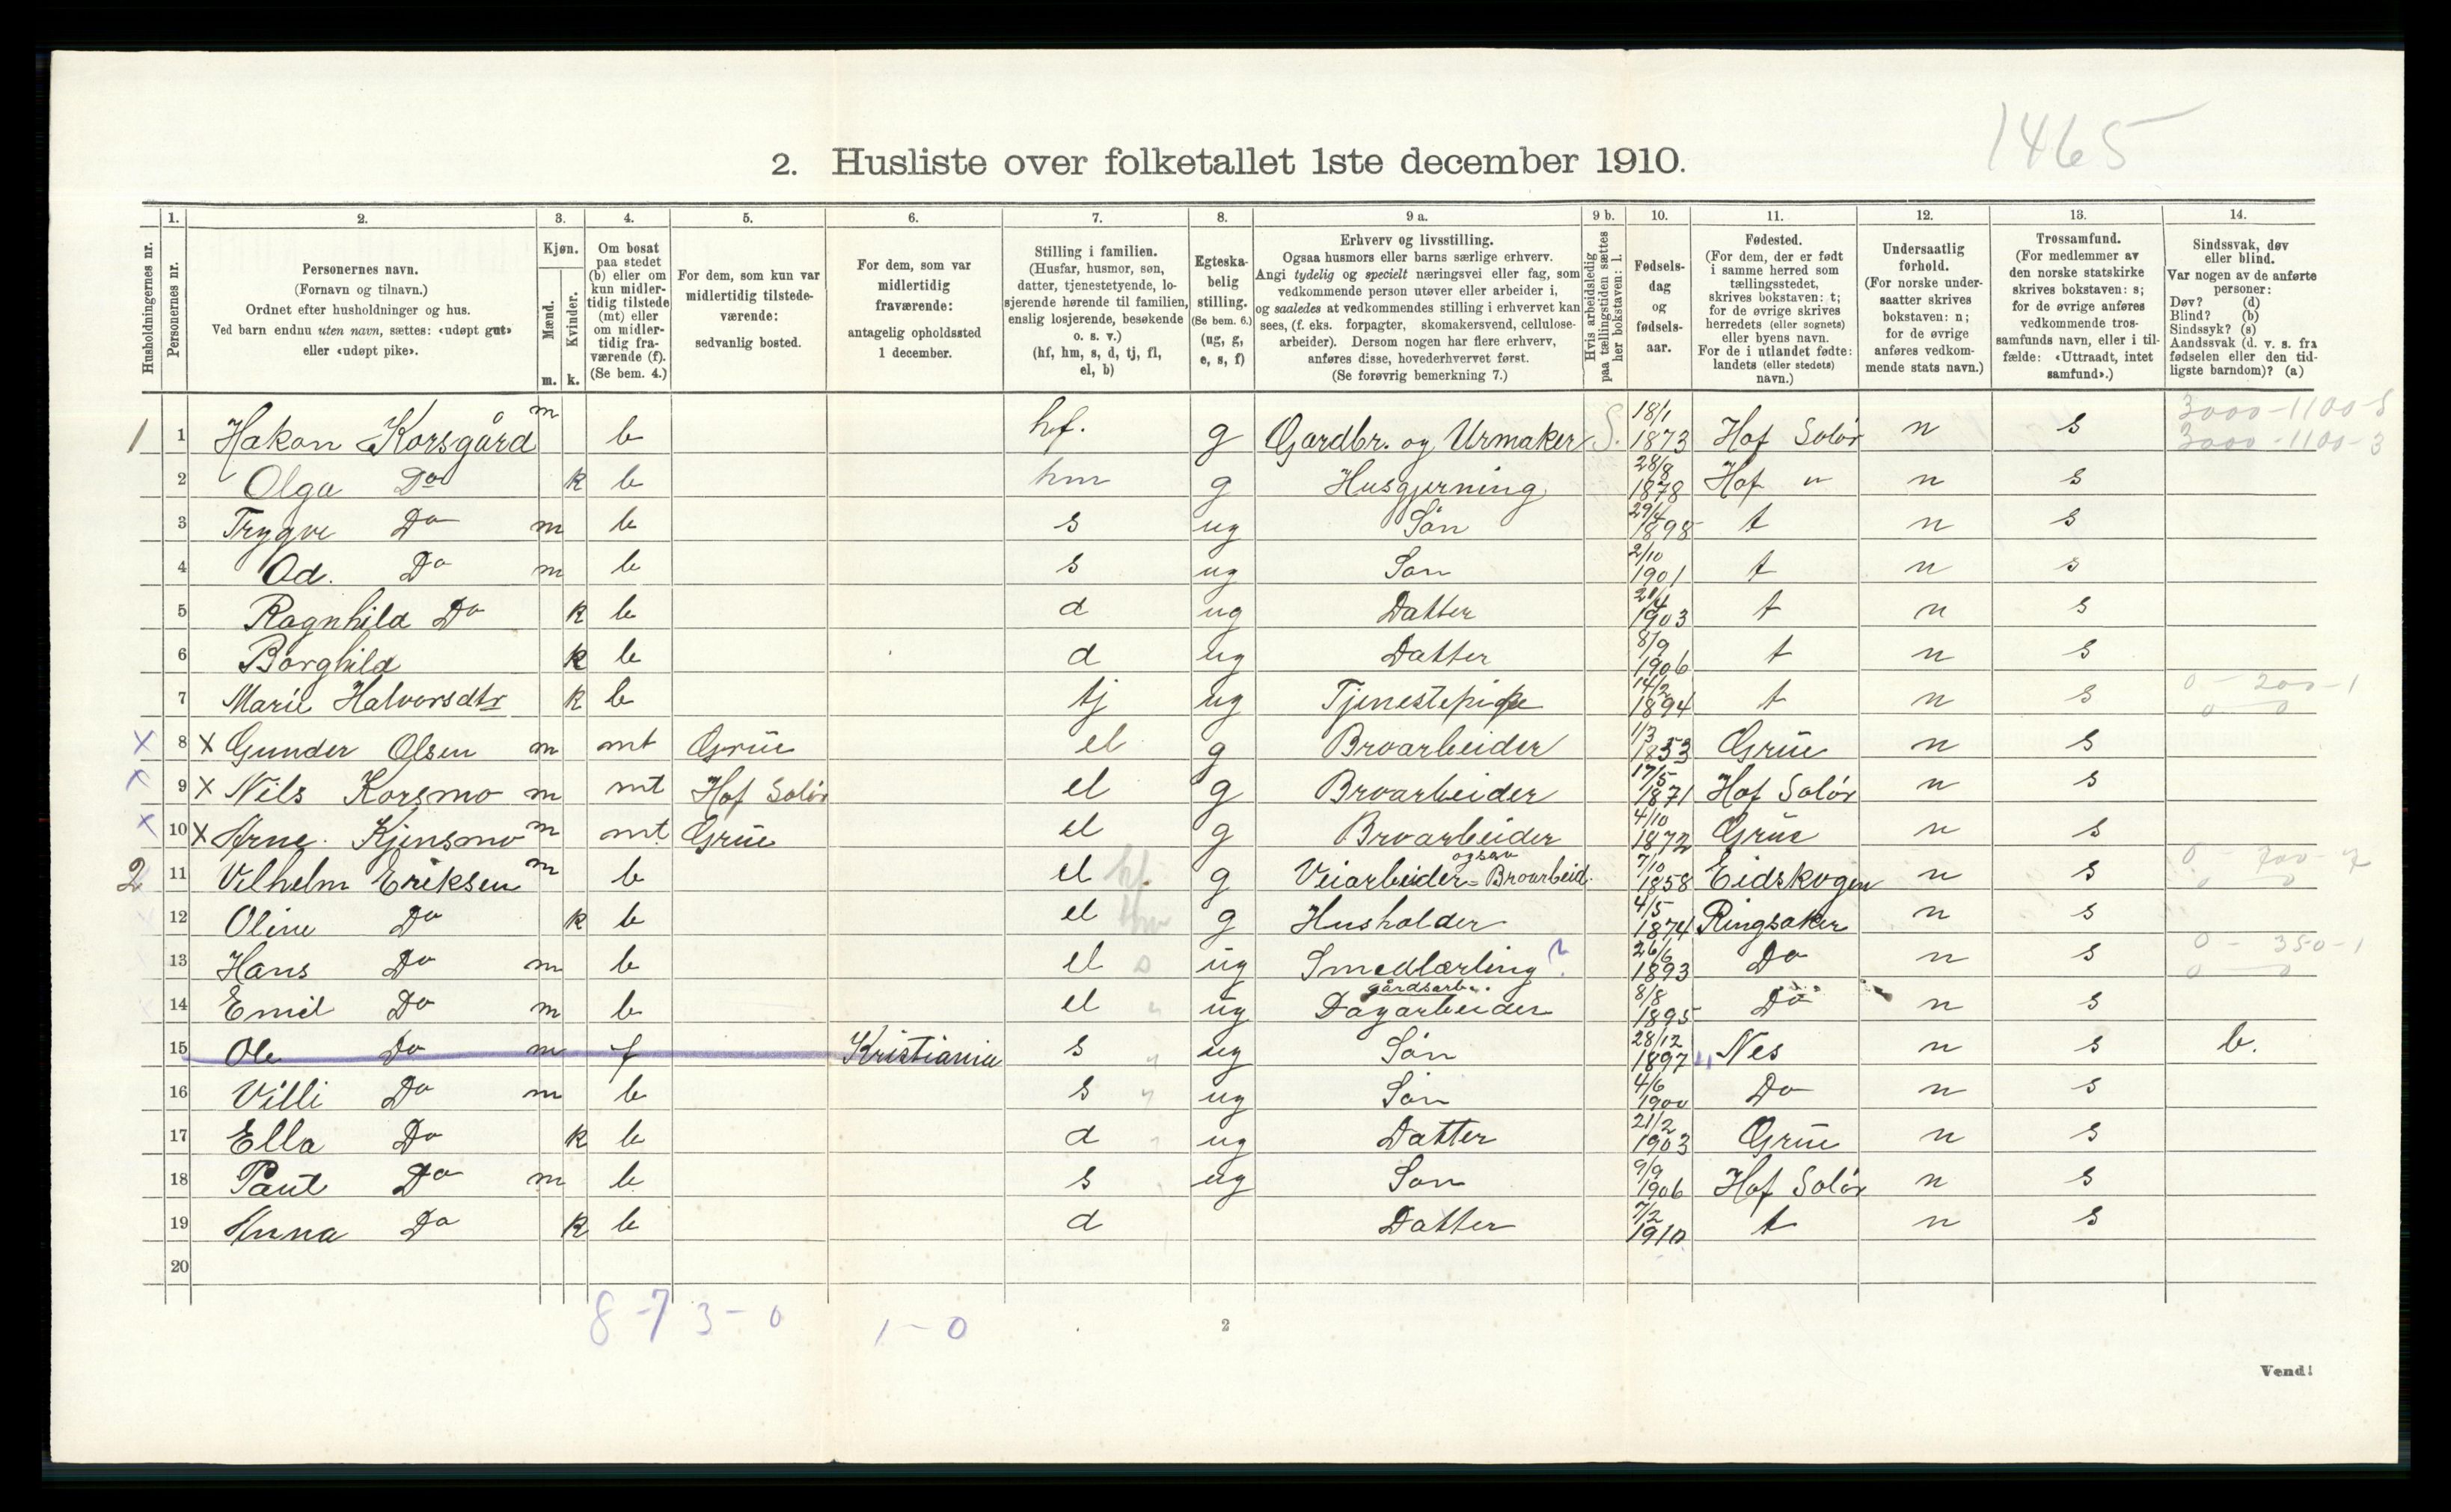 1465
2. Husliste over folketallet 1ste december 1910.
1. 2. 3. 4. 5. 6. 7. 8. 9 a. 9 b. 10. 11. 12. 13. 14.
Husholdningernes nr.
Personernes nr.
Personernes navn.
(Fornavn og tilnavn.)
Ordnet efter husholdninger og hus.
Ved barn endnu uten navn, sættes: «udøpt gut»
eller «udøpt pike».
Kjøn.
Mænd.
Kvinder.
m. k.
Om bosat
paa stedet
(b) eller om
kun midler-
tidig tilstede
(mt) eller
om midler-
tidig fra-
værende (f).
(Se bem. 4.)
For dem, som kun var
midlertidig tilstede-
værende:
sedvanlig bosted.
For dem, som var
midlertidig
fraværende:
antagelig opholdssted
1 december.
Stilling i familien.
(Husfar, husmor, søn,
datter, tjenestetyende, lo-
sjerende hørende til familien,
enslig losjerende, besøkende
o. s. v.)
(hf, hm, s, d, tj, fl,
el, b)
Egteska-
belig
stilling.
(Se bem. 6.)
(ug, g,
e, s, f)
Erhverv og livsstilling.
Ogsaa husmors eller barns særlige erhverv.
Angi tydelig og specielt næringsvei eller fag, som
vedkommende person utøver eller arbeider i,
og saaledes at vedkommendes stilling i erhvervet kan
sees, (f. eks. forpagter, skomakersvend, cellulose-
arbeider). Dersom nogen har flere erhverv,
anføres disse, hovederhvervet først.
(Se forøvrig bemerkning 7.)
Hvis arbeidsledig
paa tællingstiden sættes
her bokstaven: l.
Fødsels-
dag
og
fødsels-
aar.
Fødested.
(For dem, der er født
i samme herred som
tællingsstedet,
skrives bokstaven: t;
for de øvrige skrives
herredets (eller sognets)
eller byens navn.
For de i utlandet fødte:
landets (eller stedets)
navn.)
Undersaatlig
forhold.
(For norske under-
saatter skrives
bokstaven: n;
for de øvrige
anføres vedkom-
mende stats navn.)
Trossamfund.
(For medlemmer av
den norske statskirke
skrives bokstaven: s;
for de øvrige anføres
vedkommende tros-
samfunds navn, eller i til-
fælde: «Uttraadt, intet
samfund».)
Sindssvak, døv
eller blind.
Var nogen av de anførte
personer:
Døv? (d)
Blind? (b)
Sindssyk? (s)
Aandssvak (d. v. s. fra
fødselen eller den tid-
ligste barndom)? (a)
1 1 Hakon Korsgård m b hf. g Gardbr. og Urmaker S. 18/1 1873 Hof Solør n s 3000-1100-5 3000-1100-3
2 Olga Do k b hm g Husgjerning 28/8 1878 Hof " n s
3 Trygve Do m b s ug Søn 29/4 1898 t n s
4 Od. Do m b s ug Søn 2/10 1901 t n s
5 Ragnhild Do k b d ug Datter 1903 t n s
6 Borghild k b d ug Datter 8/9 1906 t n s
7 Marie Halvorsdtr k b tj ug Tjenestepige 14/2 1894 t n s 0-200-1 0 0
x 8 x Gunder Olsen m mt Grue el g Broarbeider 1/3 1853 Grue n s
x 9 x Nils Korsmo m mt Hof Solør el g Broarbeider 17/5 1871 Hof Solør n s
x 10 x Arne Kjensmo m mt Grue el g Broarbeider 4/10 1872 Grue n s
2 11 Vilhelm Eriksen m b el hf. g Veiarbeider = ogsaa Broarbeid. 7/10 1858 Eidskogen n s 0-700-7 0 0
12 Oline Do k b el hm g Husholder 4/5 1874 Ringsaker n s
13 Hans Do m b el s ug Smedlærling ? 26/6 1893 Do n s 0-350-1 0 0
14 Emil Do m b el " ug gårdsarb. Dagarbeider 8/8 1895 Do n s
15 Ole Do m f Kristiania s " ug Søn 28/12 1897 Nes n s b.
16 Villi Do m b s " ug Søn 4/6 1900 Do n s
17 Ella Do k b d " ug Datter 21/2 1903 Grue n s
18 Paul Do m b s ug Søn 9/9 1906 Hof Solør n s
19 Anna Do k b d Datter 7/2 1910 t n s
20
8-7 3-0 1-0
2
Vend!